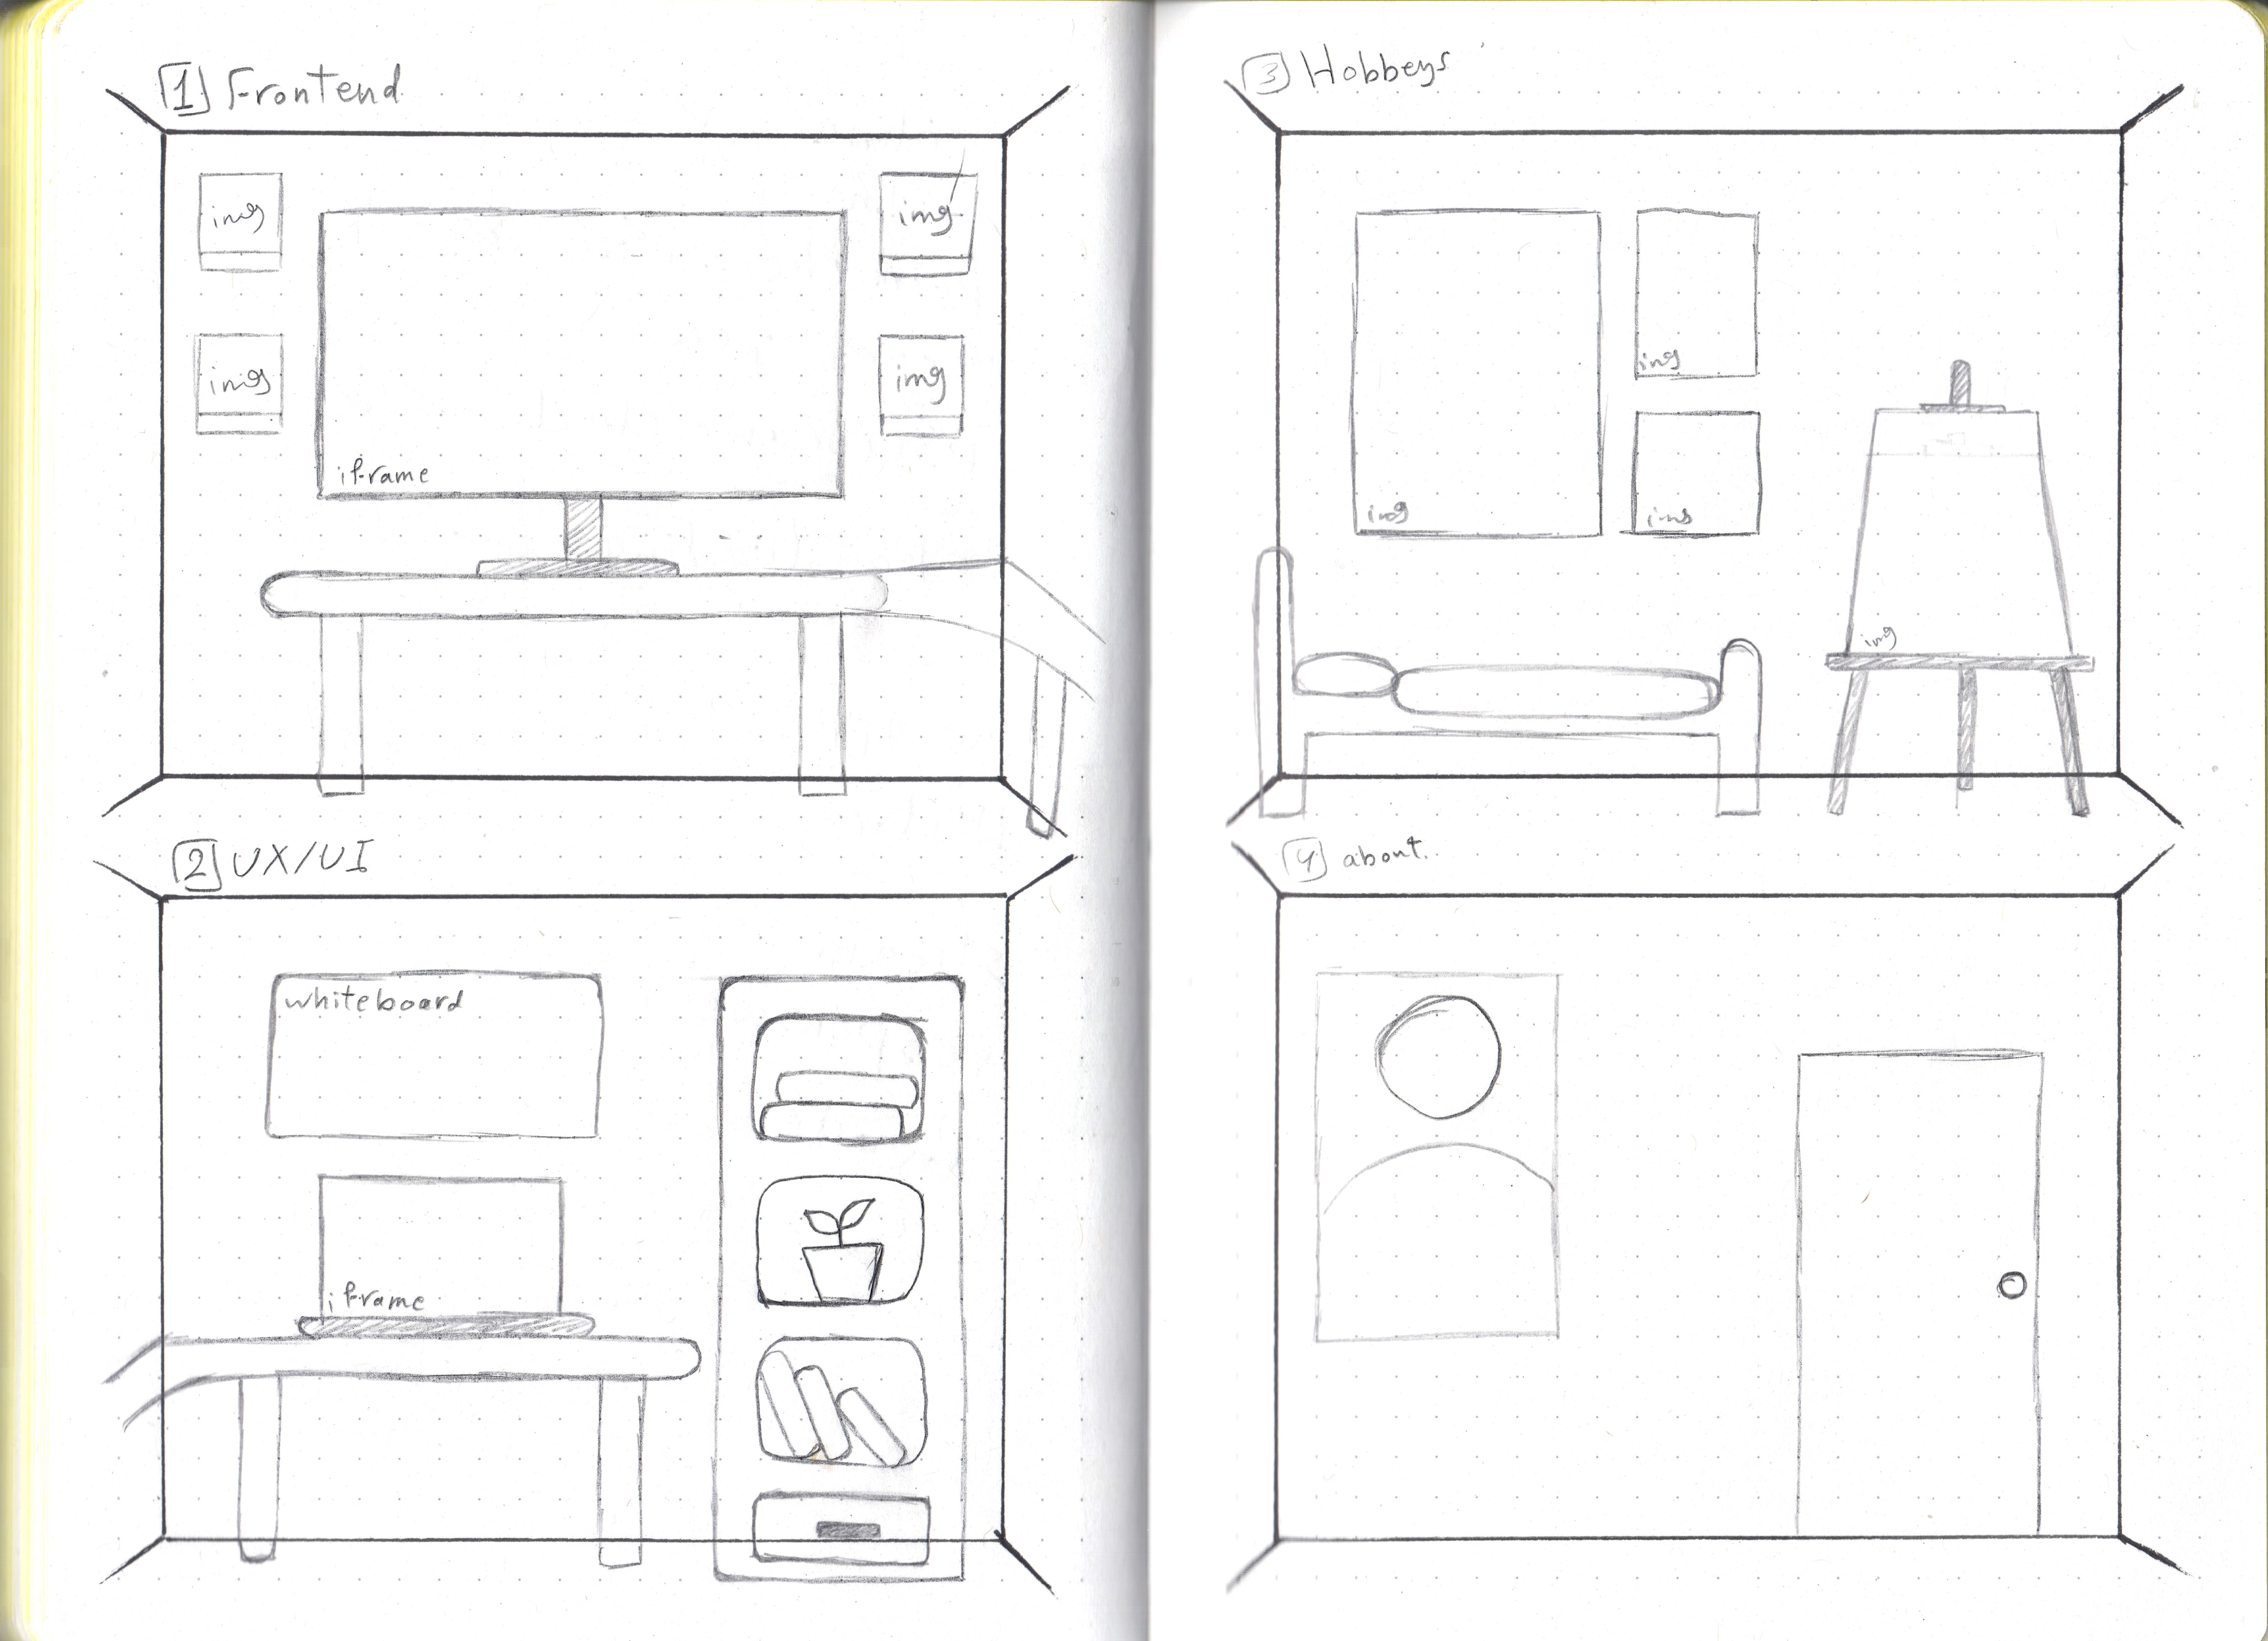 1 Frontend
img
img
iframe
img
img
2 UX/UI
whiteboard
iframe
3 Hobbeys
img
img
img
img
4 about.